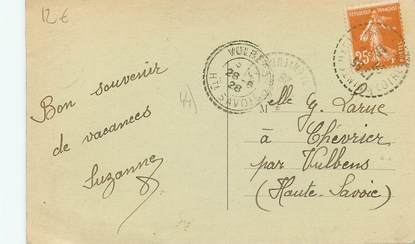 12 €
Bon souvenir
de vacances
Suzanne
44
VULBENS
HTE SAVOIE
28
28
25c
Melle Y. Larue
à Chévrier
par Vulbens
(Haute Savoie)